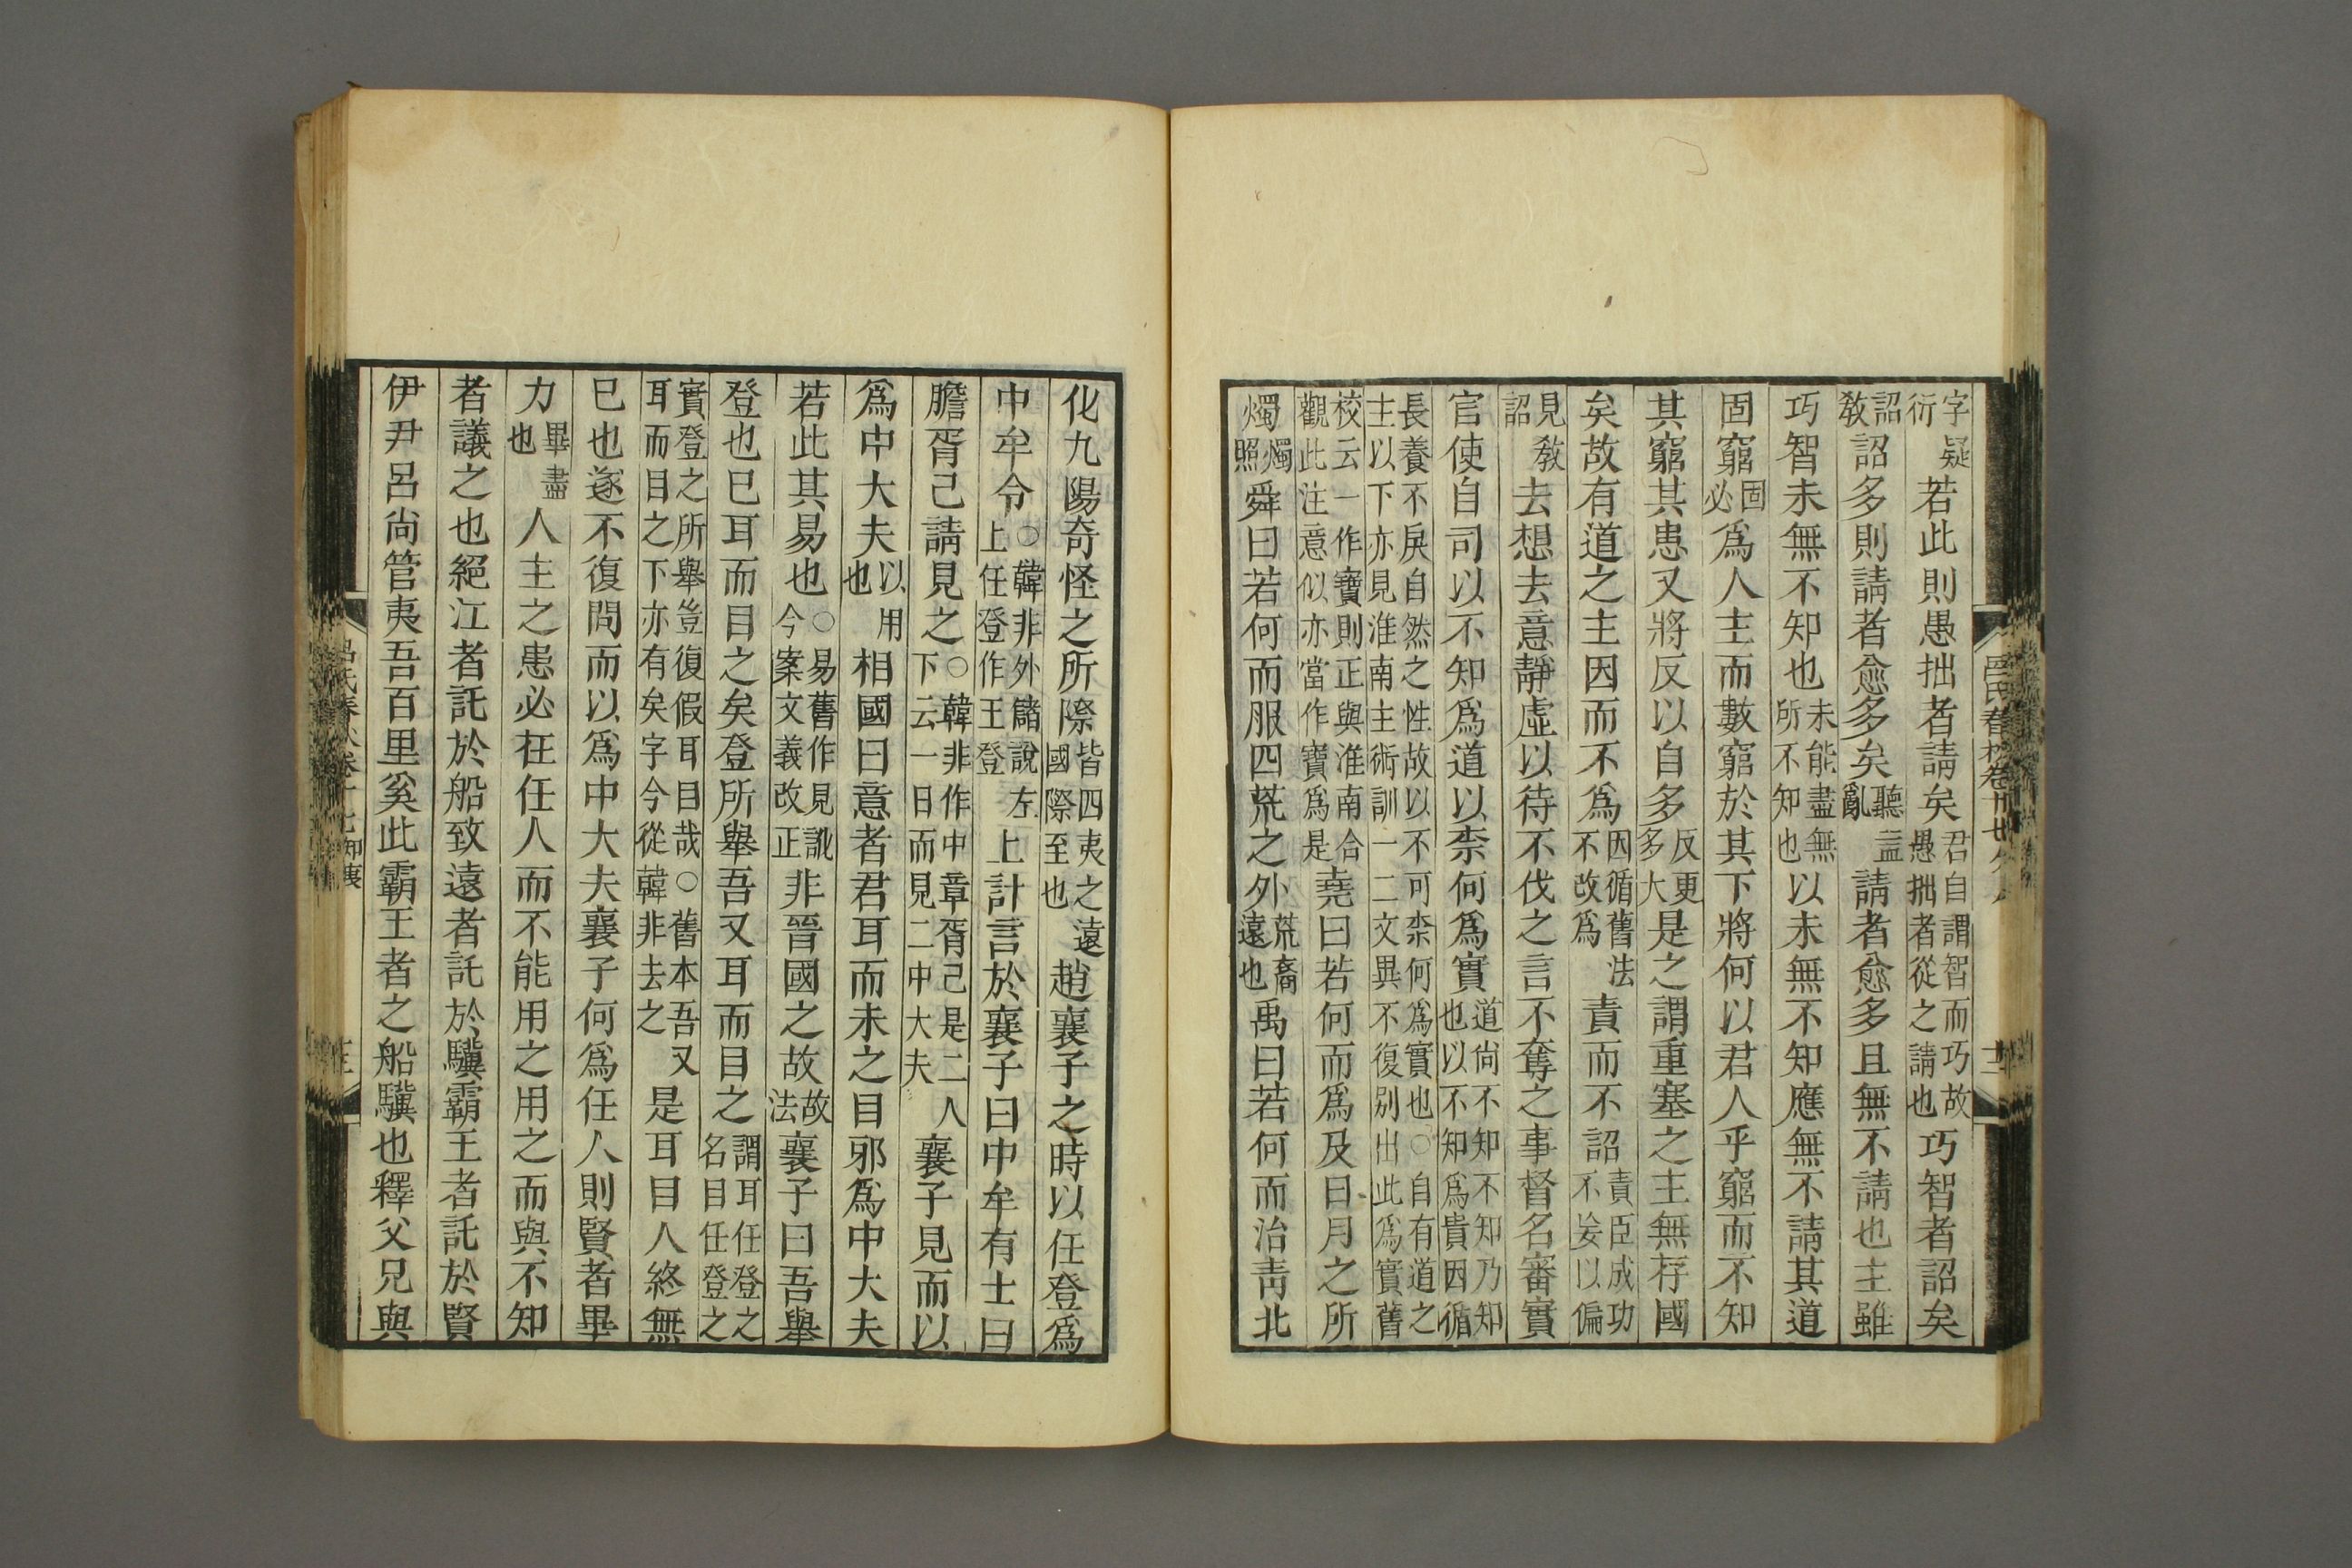 字疑衍若此則愚拙者請矣君自謂智而巧故愚拙者從之請也巧智者詔矣
詔教詔多則請者愈多矣聽益亂請者愈多且無不請也主雖
巧智未無不知也未能盡無所不知也以未無不知應無不請其道
固窮固必爲人主而數窮於其下將何以君人乎窮而不知
其窮其患又將反以自多反更多大是之謂重塞之主無存國
矣故有道之主因而不爲因循舊法不改爲責而不詔責臣成功不妄以偏
見教詔去想去意靜虛以待不伐之言不奪之事督名審實
官使自司以不知爲道以柰何爲實道尚不知不知乃知也以不知爲貴因循
長養不戾自然之性故以不可柰何爲實也○自有道之主以下亦見淮南主術訓一二文異不復别出此爲實舊
校云一作寶則正與淮南合觀此注意似亦當作寶爲是堯曰若何而爲及日月之所
燭燭照舜曰若何而服四荒之外荒裔遠也禹曰若何而治青北
化九陽奇怪之所際皆四夷之遠國際至也趙襄子之時以任登爲
中牟令○韓非外儲說左上任登作王登上計言於襄子曰中牟有士曰
膽胥己請見之○韓非作中章胥己是二人下云一日而見二中大夫襄子見而以
爲中大夫以用也相國曰意者君耳而未之目邪爲中大夫
若此其易也○易舊作見訛今案文義改正非晉國之故故法襄子曰吾舉
登也已耳而目之矣登所舉吾又耳而目之謂耳任登之名目任登之
實登之所舉豈復假耳目哉○舊本吾又耳而目之下亦有矣字今從韓非去之是耳目人終無
已也遂不復問而以爲中大夫襄子何爲任人則賢者畢
力畢盡也人主之患必在任人而不能用之用之而與不知
者議之也絕江者託於船致遠者託於驥霸王者託於賢
伊尹呂尚管夷吾百里奚此霸王者之船驥也釋父兄與
呂氏春秋卷十七知度